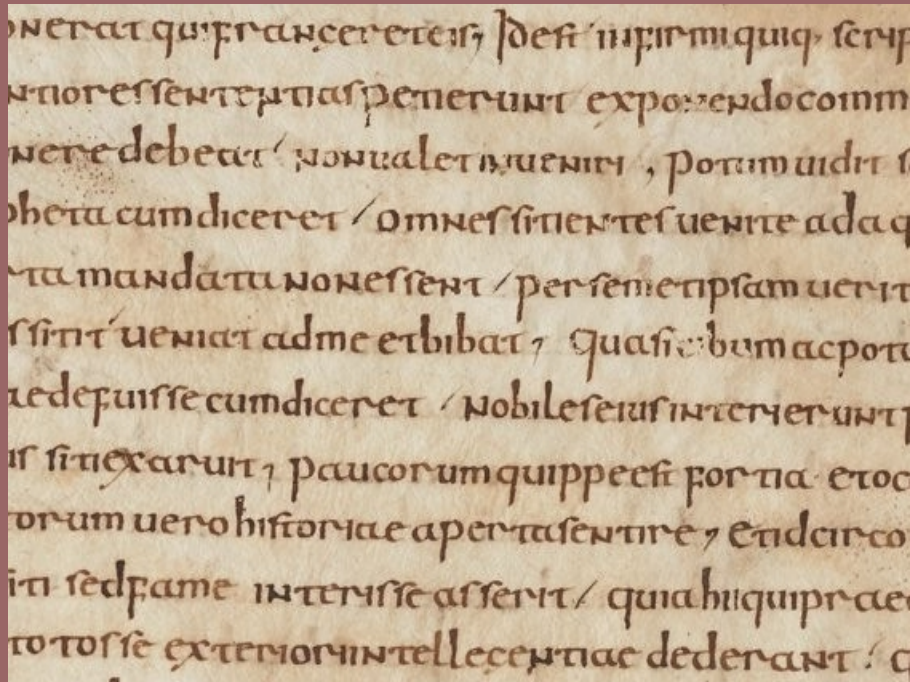 onerat quifranceret eis; Idest infirmi quiq; scrip
ntiores sententias petierunt exponendo comm
nere debeat / non ualet inueniri, Potum uidit s
pheta cum diceret / omnes sitientes uenite ad aq
rta mandata non essent / per semetipsam uerit
s sitit ueniat ad me et bibat; Quasi cibum ac potu
ae defuisse cum diceret / Nobiles eius interierunt f
us siti exaruit; Paucorum quippe est fortia et oc
torum uero historiae aperta sentire; Et idcirco
iti sed fame interisse asserit / quia hii qui prae
totos se exteriori intellecentiae dederant /